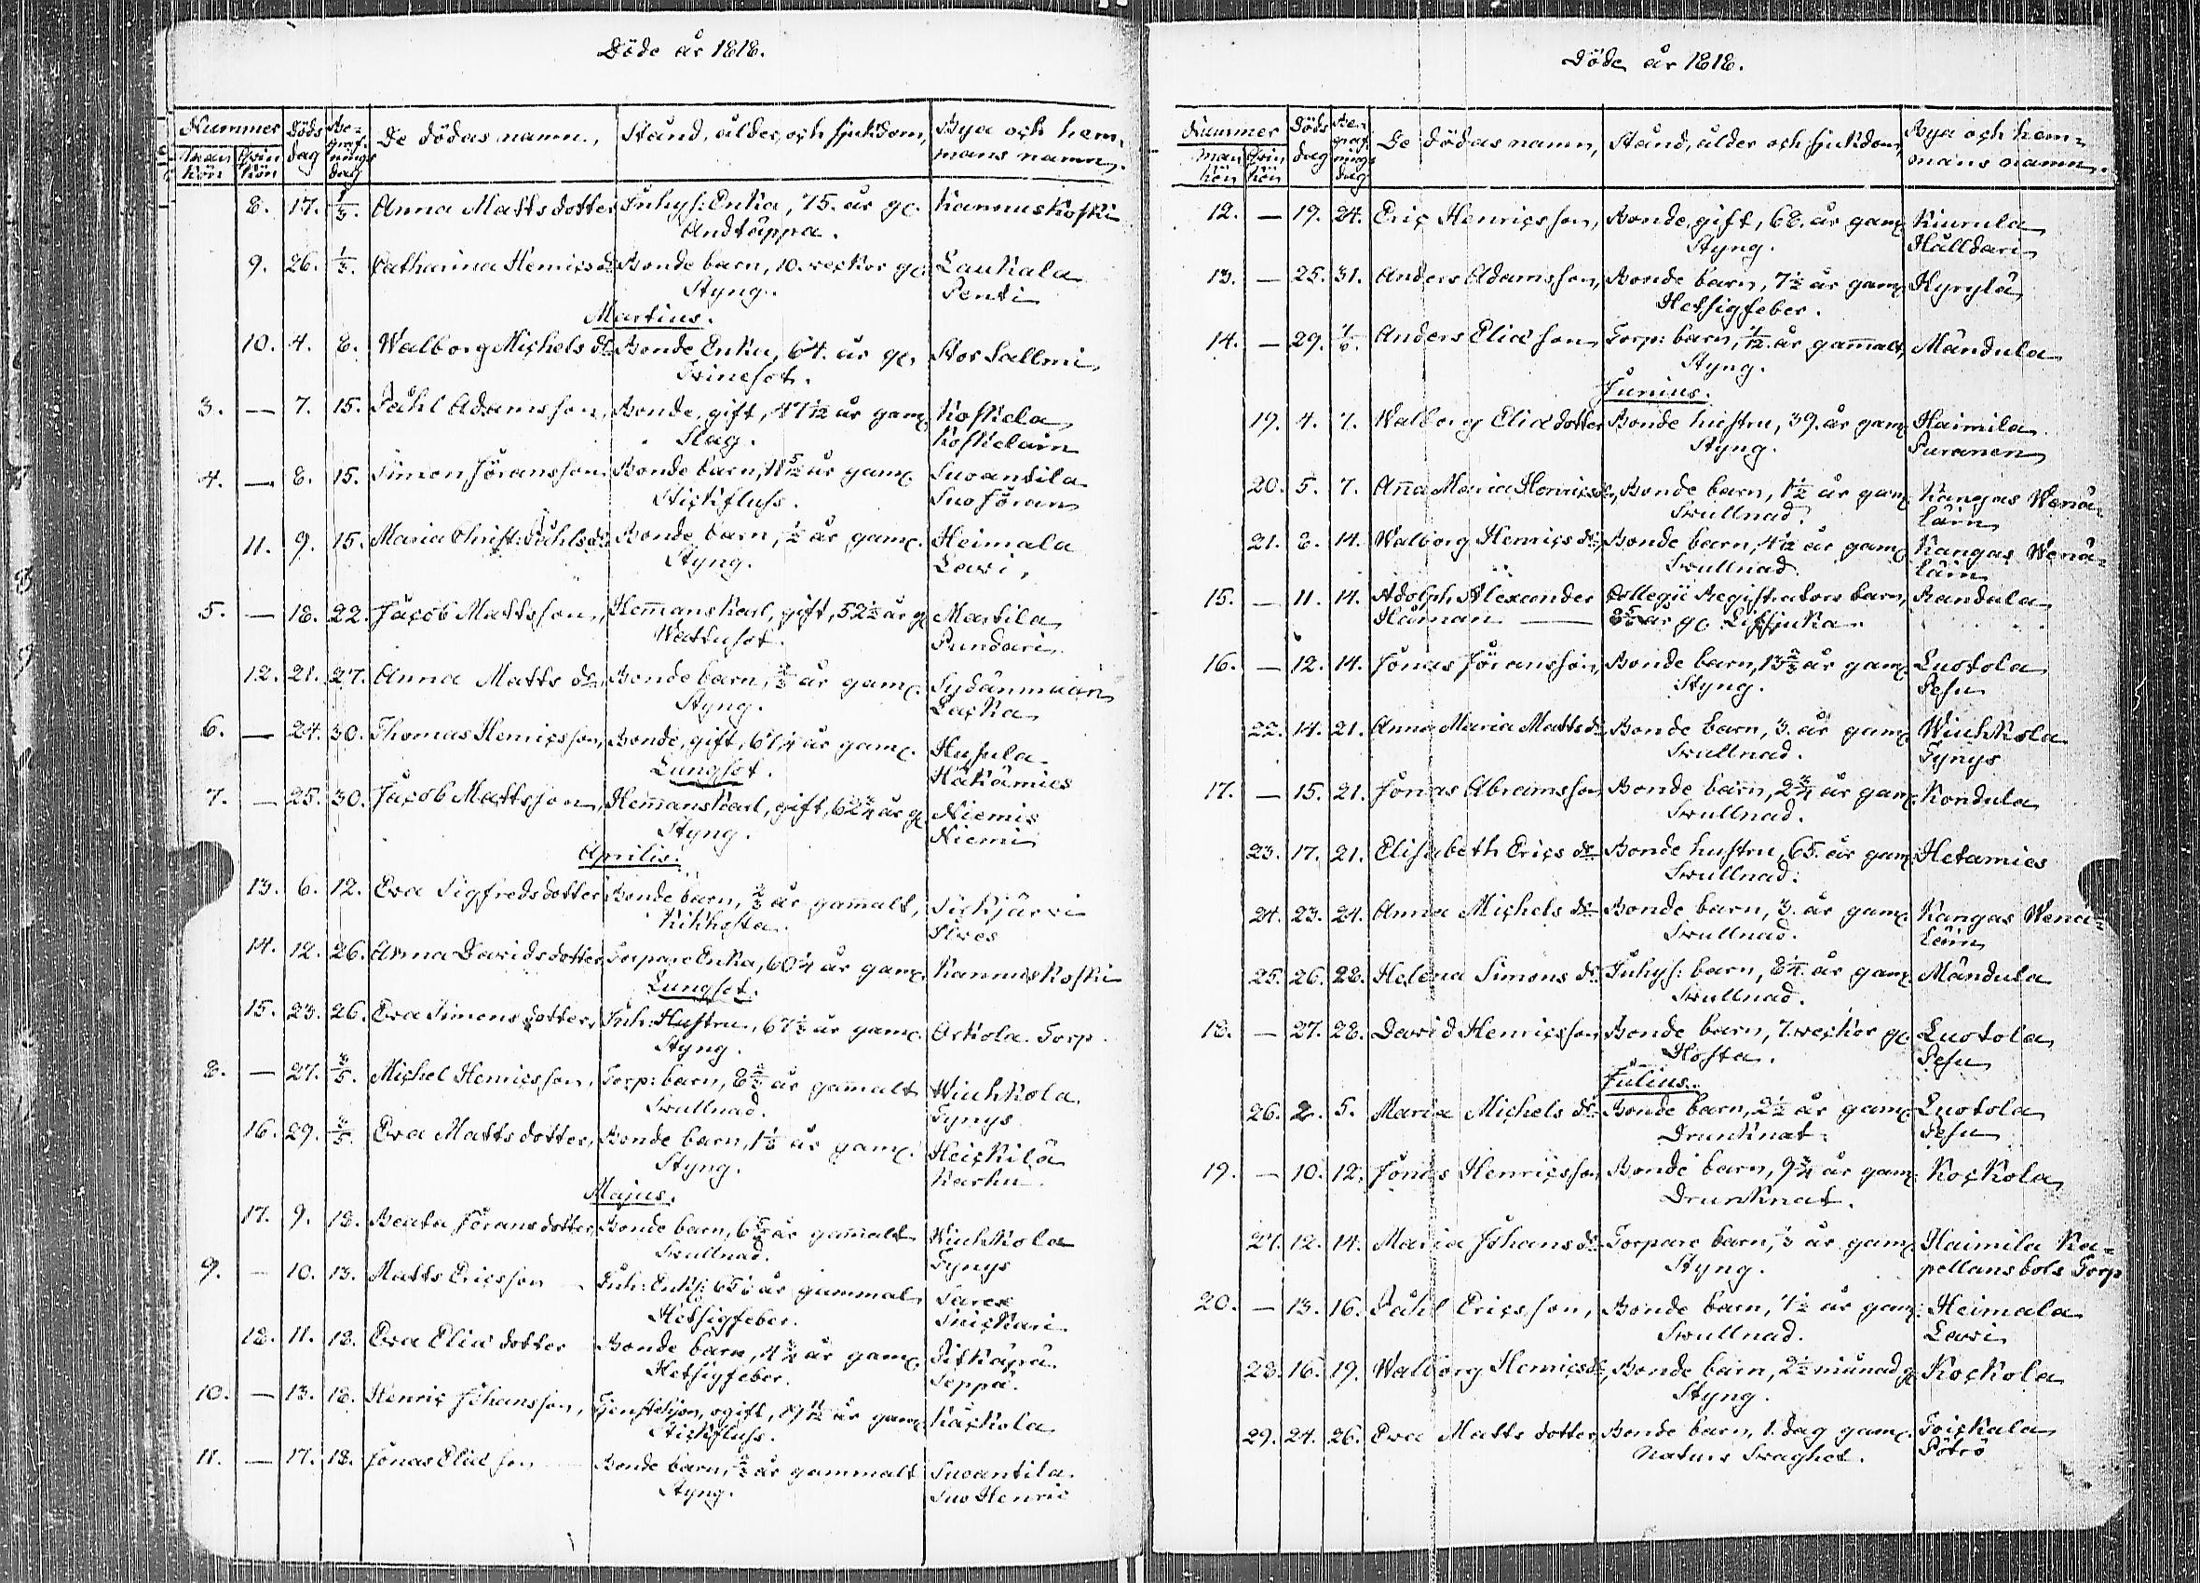 Döde år 1818.
Nummer Döds dag Be-graf-nings dag De dödas namn, Stånd, ålder och sjukdom, Bya och hem-
man kön Qvin kön mans namn.
8. 17. 1/3. Anna Matts dotter Inhys: Enka, 75. år gl. Kannuskoski
Andtäppa.
9. 26. 1/3. Catharina Henrics dr Bonde barn, 10. veckor gl. Laukala
Styng. Penti
Martius.
10. 4. 8. Walborg Michels dr Bonde Enka, 64. år gl. Stor Sallmi
Twinesot.
3. — 7. 15. Påhl Adamsson, Bonde, gift, år gam. Koskela
Slag. Koskelain
4. — 8. 15. Simon Jöransson Bonde barn, år gam. Suoantila
Stickfluss. Suo Jöran
11. 9. 15. Maria Christ: Påhls dr Bonde barn, 1/2 år gam. Heimala
Styng. Lavi,
5. — 18. 22. Jacob Mattsson, Hemmanskarl, gift, 52 1/2 år gl Martila
Wattusot. Pundari
12. 21. 27. Anna Matts dr Bonde barn, 2/3 år gam. Sydänmaan
Styng. Lacka
6. — 24. 30. Thomas Henricsson, Bonde, gift, 61 1/4 år gam. Husula
Lungsot. Häkämies
7. — 25. 30. Jacob Mattsson, Hemmanskarl, gift, 62 3/4 år gl Niemis
Styng. Niemi
Aprilis.
13. 6. 12. Eva Sigfredsdotter Bonde barn, 2/3 år gammalt, Sickjärvi
Kikhosta. Sires
14. 12. 26. Anna Davidsdotter Torpare Enka, 60 1/4 år gam. Kannuskoski
Lungsot.
15. 23. 26. Eva Simons dotter, Inh: Hustru, 67 1/2 år gam. Orkola Torp
Styng.
8. — 27. 3/5. Michel Henricsson, Torp: barn, år gammalt Wiuhkola
Swullnad. Tynys
16. 29. 3/5. Eva Matts dotter, Bonde barn, år gam. Heickilä
Styng. Karhu
Majus.
17. 9. 18. Beata Jörans dotter Bonde barn, år gammalt Wiuhkola
Swullnad. Tynys
9. — 10. 13. Matts Ericsson Inh: Enkl: år gammal
Hetsigfeber.
18. 11. 18. Eva Elias dotter Bonde barn, 4 3/4 år gam. Pitkäpä
Hetsigfeber. Seppä.
10. — 13. 18. Henric Johansson, ogift, år gam. Käckola
Stickfluss.
11. — 17. 18. Jonas Elias son Bonde barn, 2/3 år gammalt Suoantila
Styng. Suo Henric
Döde år 1818.
Nummer Döds dag Be-graf-nings dag De dödas namn, Stånd, ålder och sjukdom, Bya och hem-
man kön Qvin kön mans namn.
12. — 19. 24. Eric Henricsson, Bonde, gift, 68. år gam. Kiurula
Styng. Hålldari
13. — 25. 31. Anders Adamsson, Bonde barn, 7 1/2 år gam. Kyrylä
Hetsigfeber.
14. — 29. 7/6. Anders Elias son Torp: barn, år gammalt, Mändula
Styng.
Junius.
19. 4. 7. Walborg Elias dotter Bonde hustru, 39. år gam. Haimila
Styng. Puranen
20. 5. 7. Anna Maria Henrics dr, Bonde barn, 1 1/2 år gam. Kangas Wenä-
Swullnad. läin
21. 8. 14. Walborg Henrics dr, Bonde barn, 4 1/2 år gam. Kangas Wenä-
Swullnad. läin
15. — 11. 14. Adolph Alexander Collegii Registrators barn, Randula
Häman — år gl. Lifsjuka.
16. — 12. 14. Jonas Jöransson, Bonde barn, 13 2/3 år gam. Luotola
Styng. Pesu
22. 14. 21. Anna Maria Matts dr Bonde barn, 3. år gam. Wiuhkola
Swullnad. Tynys
17. — 15. 21. Jonas Abramsson Bonde barn, 2 3/4 år gam. Kondula
Swullnad.
23. 17. 21. Elisabeth Erics dr Bonde hustru, 65. år gam. Hetamies
Swullnad.
24. 23. 24. Anna Michels dr Bonde barn, 3. år gam. Kangas Wenä-
Swullnad. läin
25. 26. 28. Helena Simons dr Inhys: barn, 8 1/4 år gam. Mändula
Swullnad.
18. — 27. 28. David Henricsson Bonde barn, 7. veckor gl. Luotola
Hosta. Pesu
Julius.
26. 2. 5. Maria Michels dr Bonde barn, 2 1/2 år gam. Luotola
Drunknat. Pesu
19. — 10. 12. Jonas Henricsson Bonde barn, 9 3/4 år gam. Kockola
Drunknat.
27. 12. 14. Maria Johans dr Torpare barn, 1/3 år gam. Haimila Ka-
Styng. pellansbols Torp
20. — 13. 16. Påhl Ericsson, Bonde barn, 1 1/2 år gam. Heimala
Swullnad. Lavi
28. 16. 19. Walborg Henricsdr, Bonde barn, 2 1/2 månad gl Kockola
Styng.
29. 24. 26. Eva Matts dotter, Bonde barn, 1. dag gam. Toickala
Naturs Svaghet. Pötrö